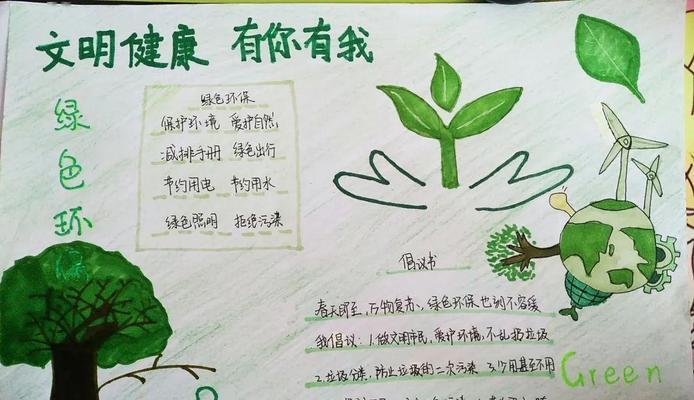 文明健康 有你有我
绿色环保
绿色环保
保护环境 爱护自然
减排手册 绿色出行
节约用电 节约用水
绿色照明 拒绝污染
倡议书
春天即至,万物复苏,绿色环保也刻不容缓
我倡议:1.做文明市民,爱护环境,不乱扔垃圾
2.垃圾分类,防止垃圾的二次污染 3.少用甚至不用
Green